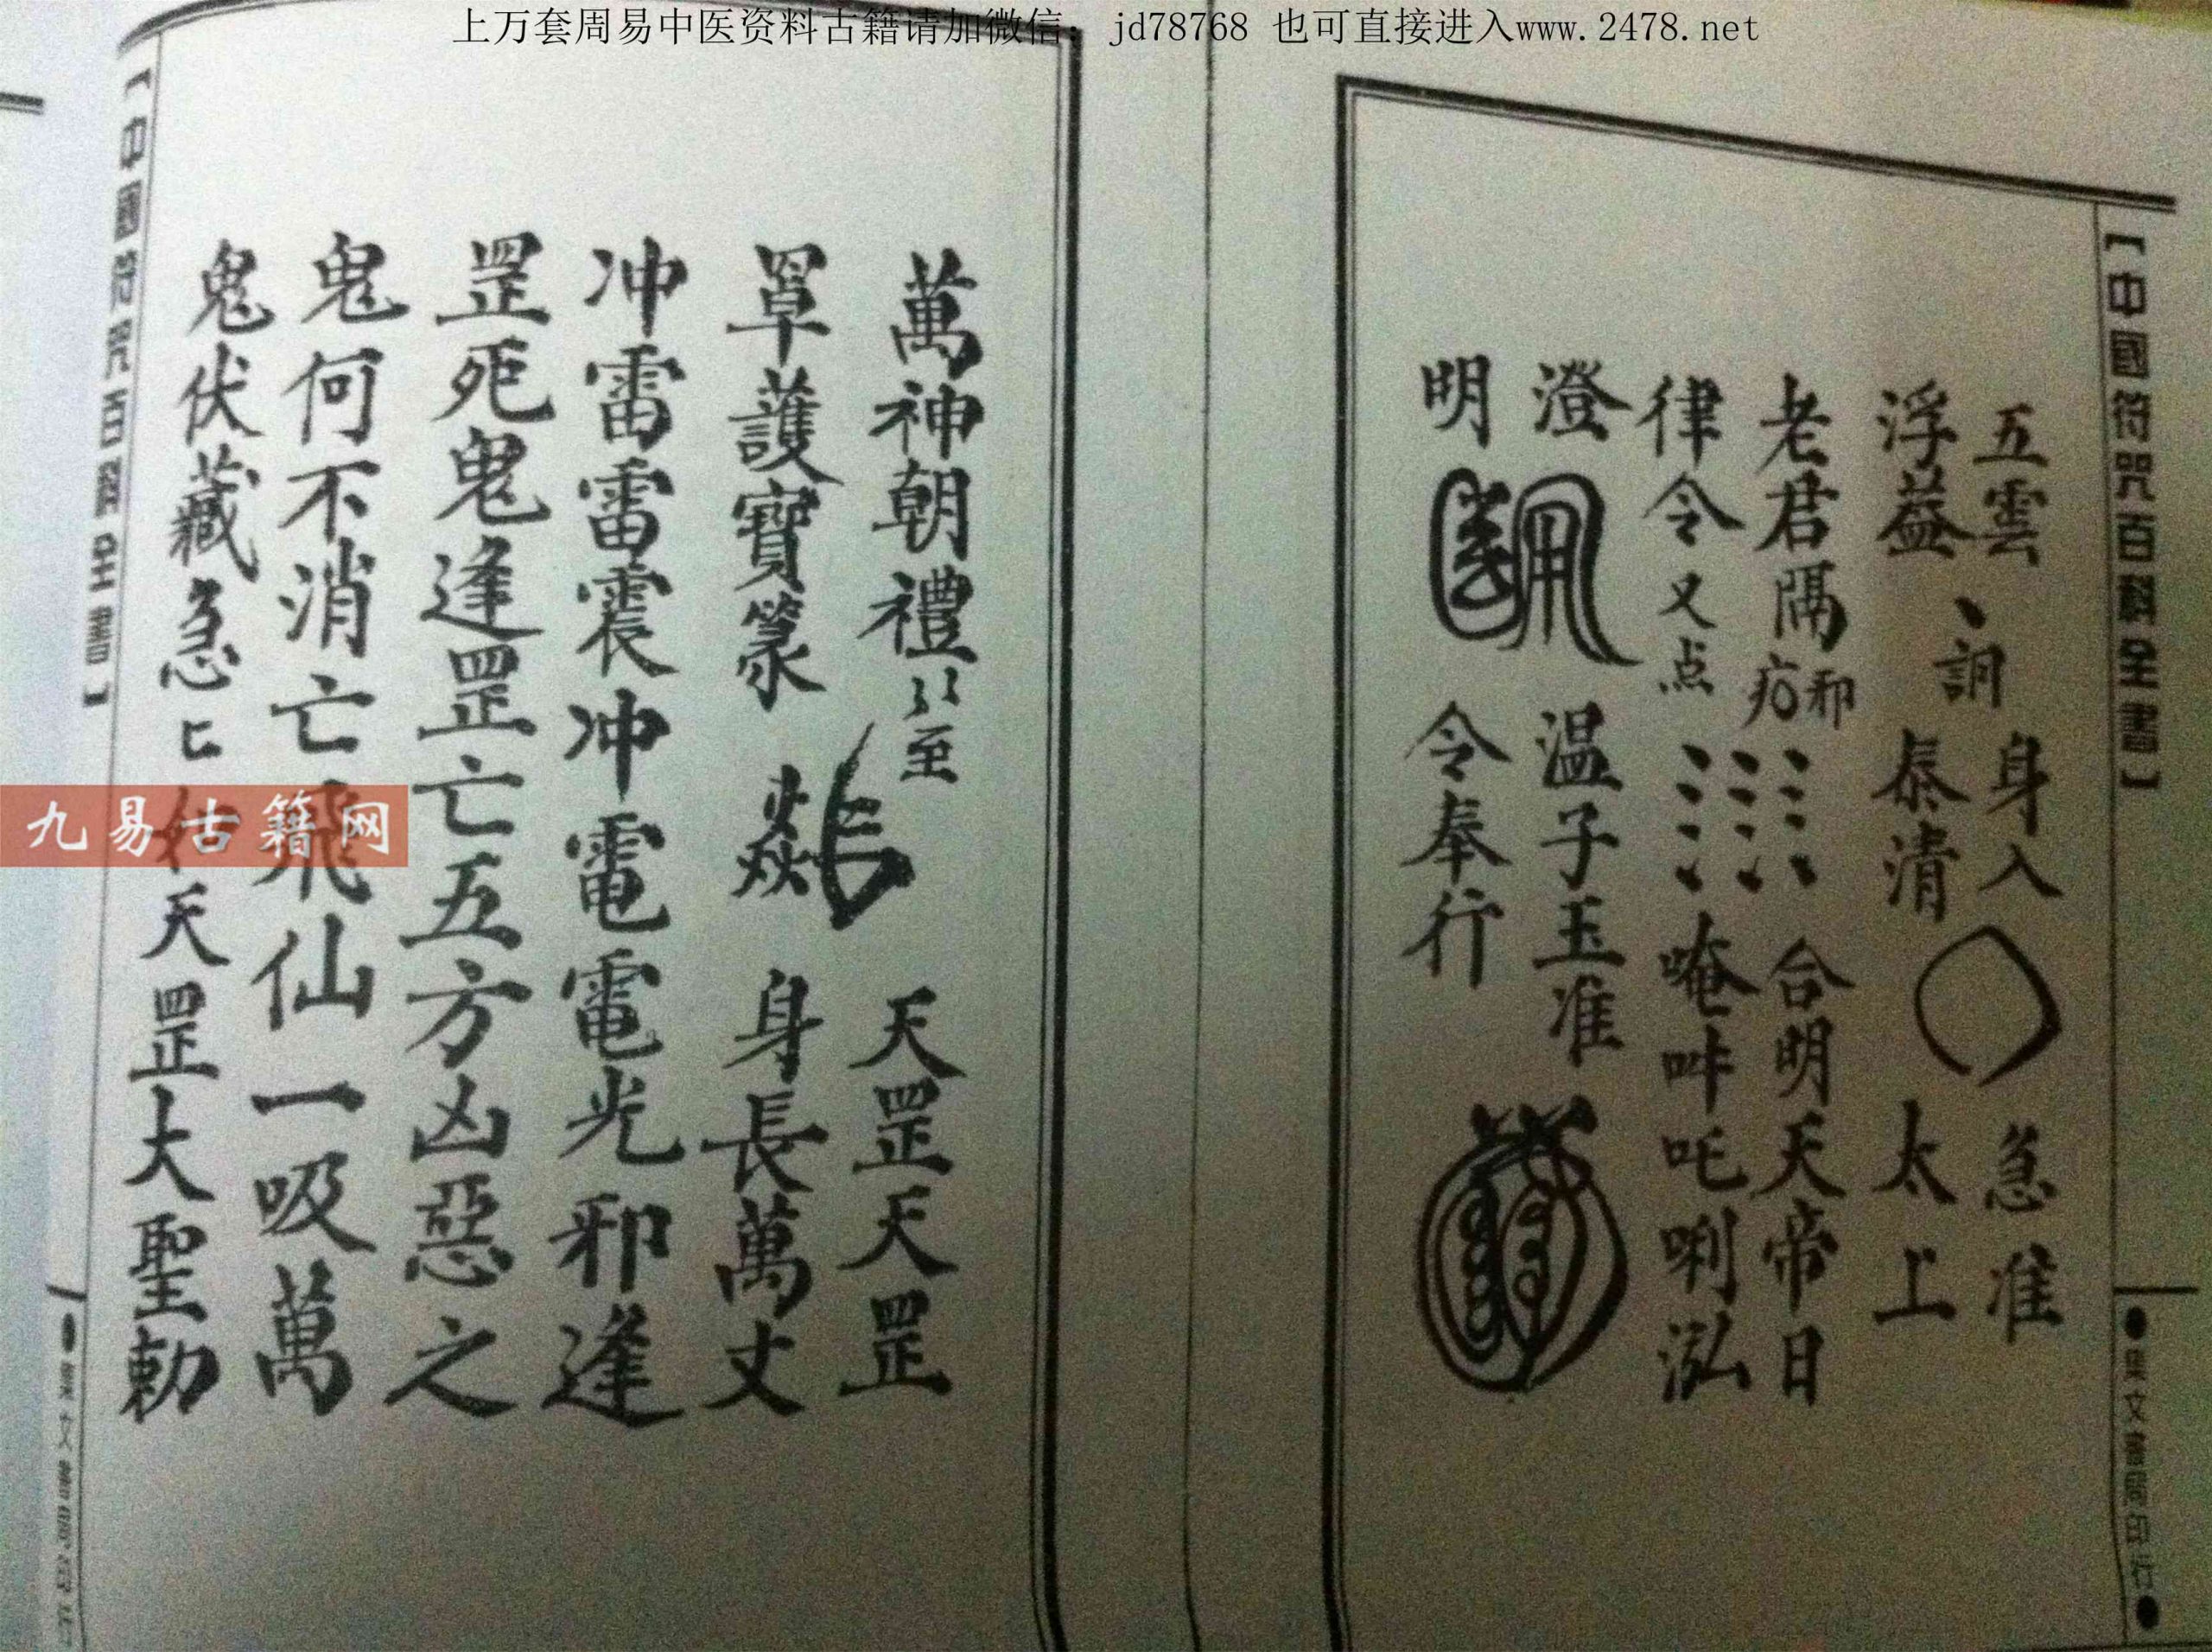 上万套周易中医资料古籍请加微信：jd78768 也可直接进入www.2478.net
【中國符咒百科全書】
●集文書局印行●
五雲 身入 急准
浮益 訶 泰清 太上
老君隅 邪 合明天帝日
律令又点 唵吽吒唎泓
澄 温子玉准
明 令奉行
萬神朝禮 至 天罡天罡
罩護寶篆 身長萬丈
冲雷雷震冲電電光邪逢
罡死鬼逢罡亡五方凶惡之
鬼何不消亡飛仙一吸萬
鬼伏藏急 天罡大聖勅
【中國符咒百科全書】
九易古籍网